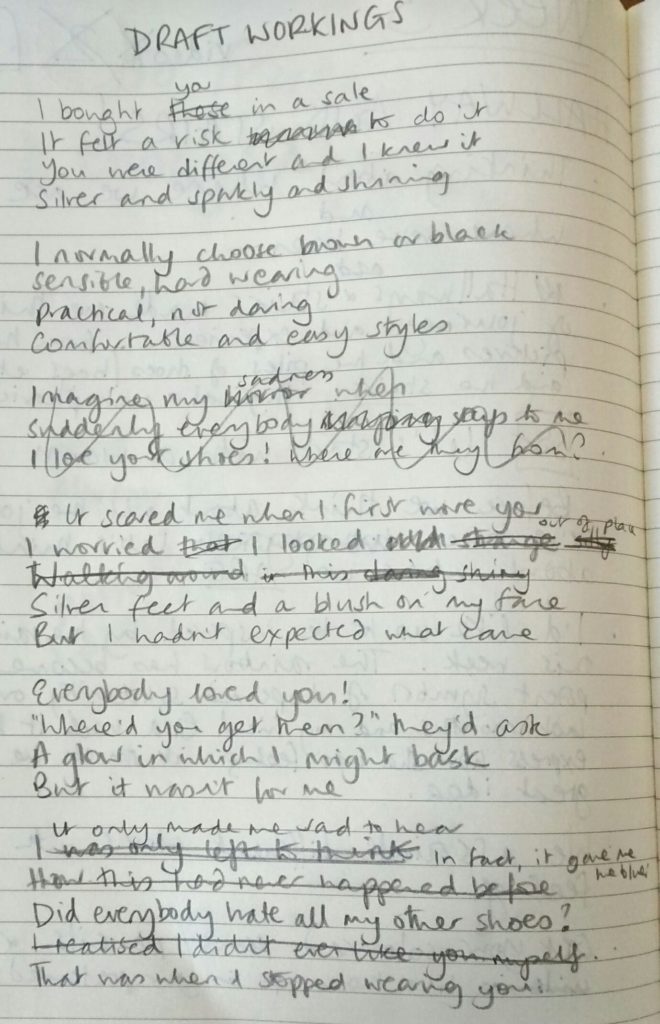 DRAFT WORKINGS
ya
I bought those in a sale
It felt a risk to do it
You were different and I knew it
Silver and sparkly and shining
I normally choose brown or black
sensible, hard wearing
practical, not daring
Comfortable and easy styles
sadness
Imagine my horror when
suddenly everybody says to me
I love your shoes! Where are they from?
It scared me when I first wore you
out of place
I worried that I looked strange silly
Walking around in this daring shiny
Silver feet and a blush on my face
But I hadn't expected what came
Everybody loved you!
"Where'd you get them?" they'd ask
A glow in which I might bask
But it wasn't for me
It only made me sad to hear
I was only left to think In fact, it gave me
the blues
How this had never happened before
Did everybody hate all my other shoes?
I realised I didn't ever like you myself.
That was when I stopped wearing you.